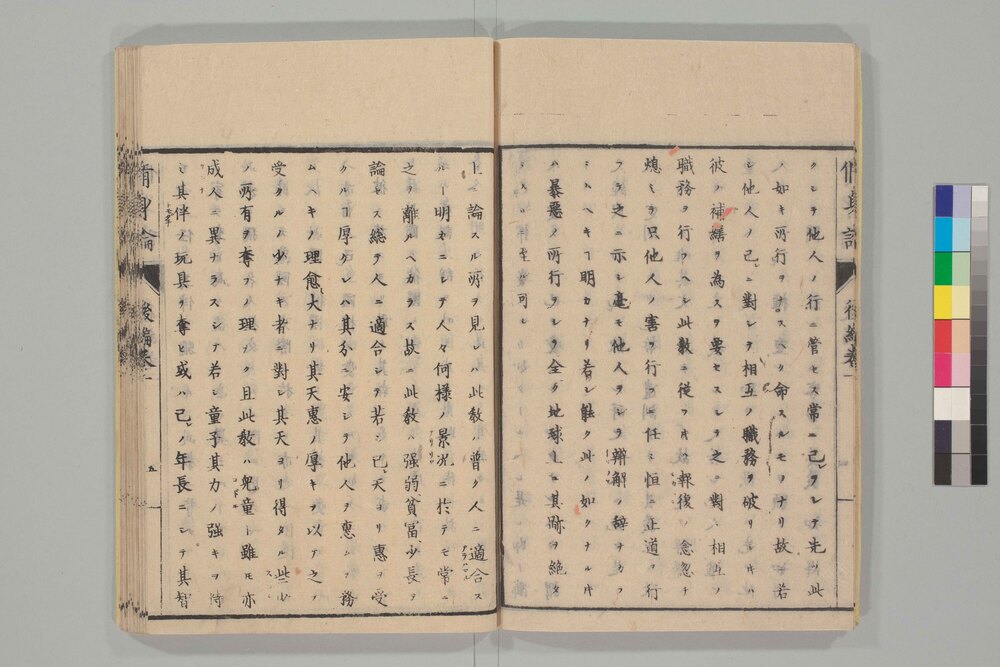 クシテ他人ノ行ニ管セス常ニ己ヲシテ先ツ此
ノ如キ所行ヲナスヲ命スルモノナリ故ニ若
シ他人ノ己ニ對シテ相互ノ職務ヲ破リシキハ
彼ノ補繕ヲ為スヲ要セスシテ之ニ對シ相互ノ
職務ヲ行フヘシ此教ニ從フ片ハ報復ノ念忽チ
熄ミテ只他人ノ害ヲ行フニ任セ恒ニ正道ヲ行
フテ之ニ示シ毫モ他人ヲシテ辨解ノ辞ナカラ
シムヘキヿ明カナリ若シ能ク此ノ如クナル片
ハ暴惡ノ所行ヲシテ全ク地球上ニ其跡ヲ絶タ
シムルニ至ル可シ
上ニ論スル所ヲ見レハ此教ノ普ク人ニ適合ス
ルヿ明カニシテ人々何樣ノ景况ニ於テモ常ニ
之ヲ離ルヘカラス故ニ此教ハ强弱貧冨少長ヲ
論セス總テ人ニ適合シテ若シ己天ヨリ惠ヲ受
クルヿ厚クレハ其分ニ安シテ他人ヲ惠ムヲ務
ムヘキノ理愈大ナリ其天惠ノ厚キヲ以テ之ヲ
受クルノ少ナキ者ニ對シ其天ヨリ得タル些少
ノ所有ヲ奪フノ理ナク且此教ハ兒童ト雖モ亦
成人ニ異ナラスシテ若シ童子其力ノ强キヲ恃
ミ其伴ノ玩具ヲ奪ヒ或ハ己ノ年長ニシテ其智
脩身論
後編卷一
五